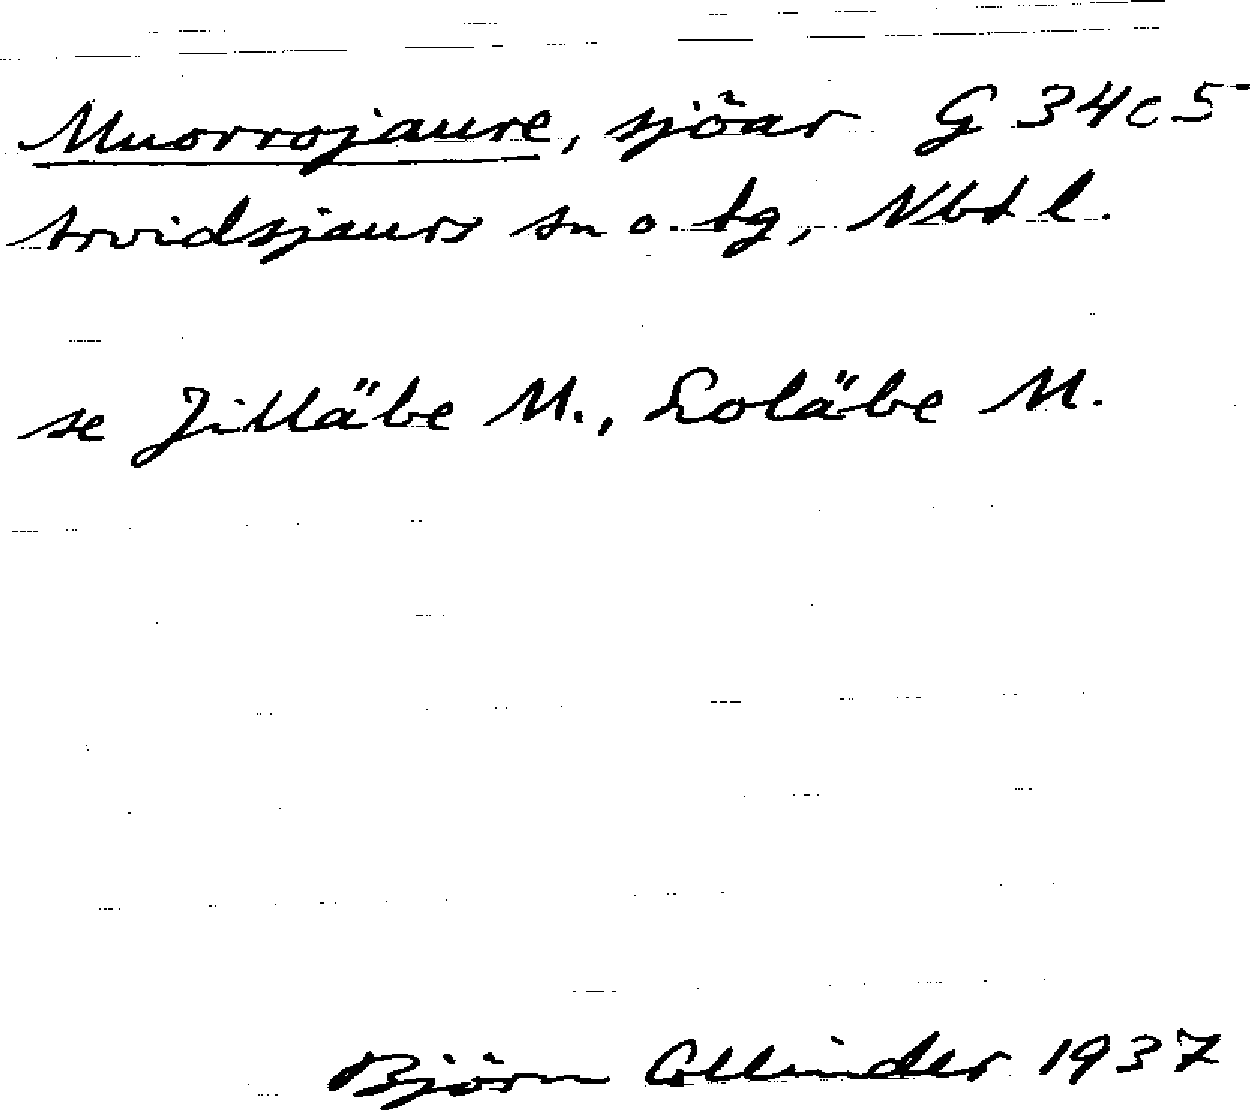 Muorrojaure, sjöar G 34c5
Arvidsjaurs sn o. tg, Nbt l.
se Jilläbe M., Loläbe M.
Björn Collinder 1937